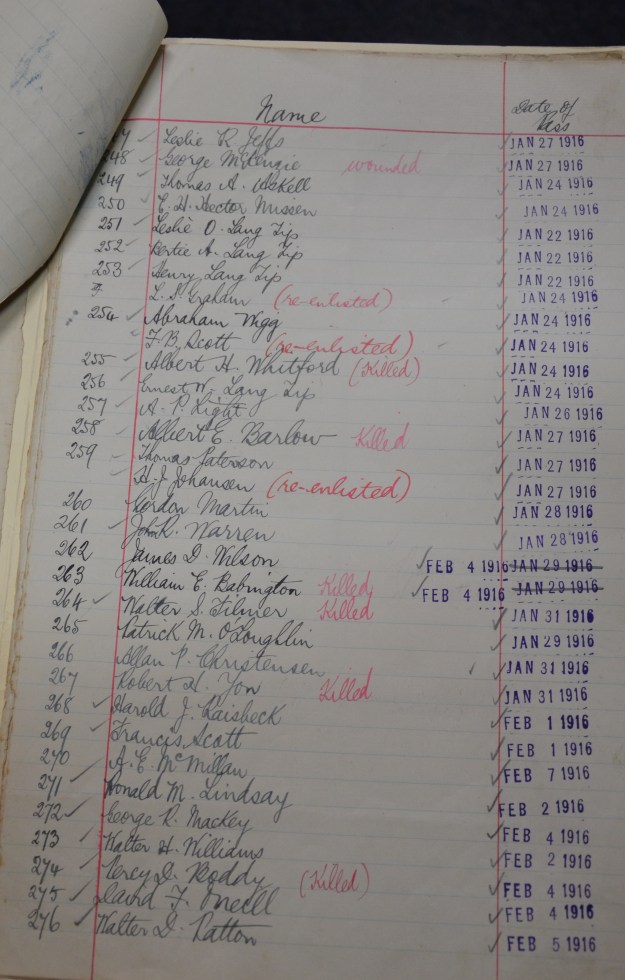 Name Date of Pass
47 Leslie R. Jeffs JAN 27 1916
248 George McKenzie wounded JAN 27 1916
249 Thomas A. JAN 24 1916
250 E. H. Hector Nissen JAN 24 1916
251 Leslie O. Lang Tip JAN 22 1916
252 Bertie A. Lang Tip JAN 22 1916
253 Henry Lang Tip JAN 22 1916
? L. S. Graham (re-enlisted) JAN 24 1916
254 Abraham Wigg JAN 24 1916
F. B. Scott (re-enlisted) JAN 24 1916
255 Albert H. Whitford (Killed) JAN 24 1916
256 Ernest W. Lang Tip JAN 24 1916
257 A. P. Light JAN 26 1916
258 Albert E. Barlow Killed JAN 27 1916
259 Thomas Paterson JAN 27 1916
H. J. Johansen (re-enlisted) JAN 27 1916
260 Gordon Martin JAN 28 1916
261 John R. Warren JAN 28 1916
262 James D. Wilson FEB 4 1916 JAN 29 1916
263 William E. Babington Killed FEB 4 1916 JAN 29 1916
264 Walter S. Filmer Killed JAN 31 1916
265 Patrick M. O'Loughlin JAN 29 1916
266 Allan P. Christensen JAN 31 1916
267 Robert H. Yon Killed JAN 31 1916
268 Harold J. Raisbeck FEB 1 1916
269 Francis Scott FEB 1 1916
270 A. E. McMillan FEB 7 1916
271 Donald M. Lindsay FEB 2 1916
272 George R. Mackey FEB 4 1916
273 Walter H. Williams FEB 2 1916
274 Percy D. Boddy (Killed) FEB 4 1916
275 David F. Oneill FEB 4 1916
276 Walter D. Patton FEB 5 1916